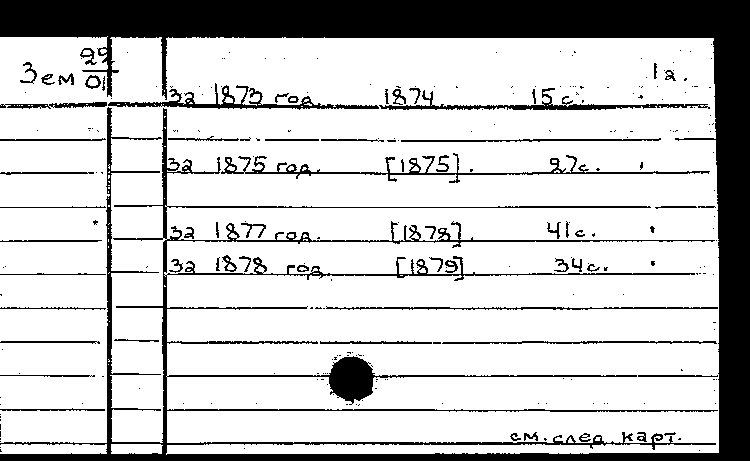 Зем 22/01
1а.
За 1873 год. 1874 15с.
За 1875 год. [1875]. 27с.
За 1877 год. [1878]. 41с.
За 1878 год. [1879]. 34с.
см. след. карт.